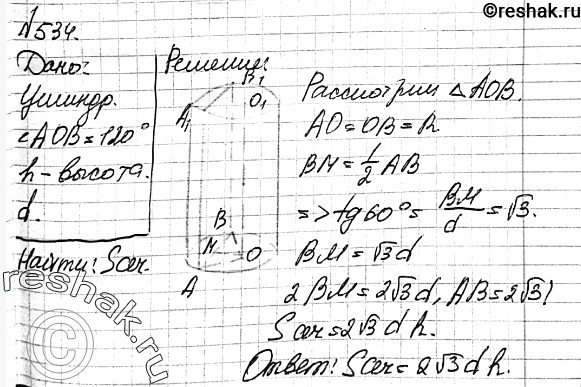 ©reshak.ru
№534.
Дано:
Цилиндр.
∠AOB=120°
h - высота.
d.
Найти: Sсеч.
Решение:
B₁
O₁
A₁
B
M
O
A
Рассмотрим △AOB.
AO=OB=R
BM=½AB
=> tg60°= BM/d =√3.
BM=√3d
2BM=2√3d, AB=2√3d
Sсеч=2√3dh.
Ответ: Sсеч=2√3dh.
reshak.ru
©